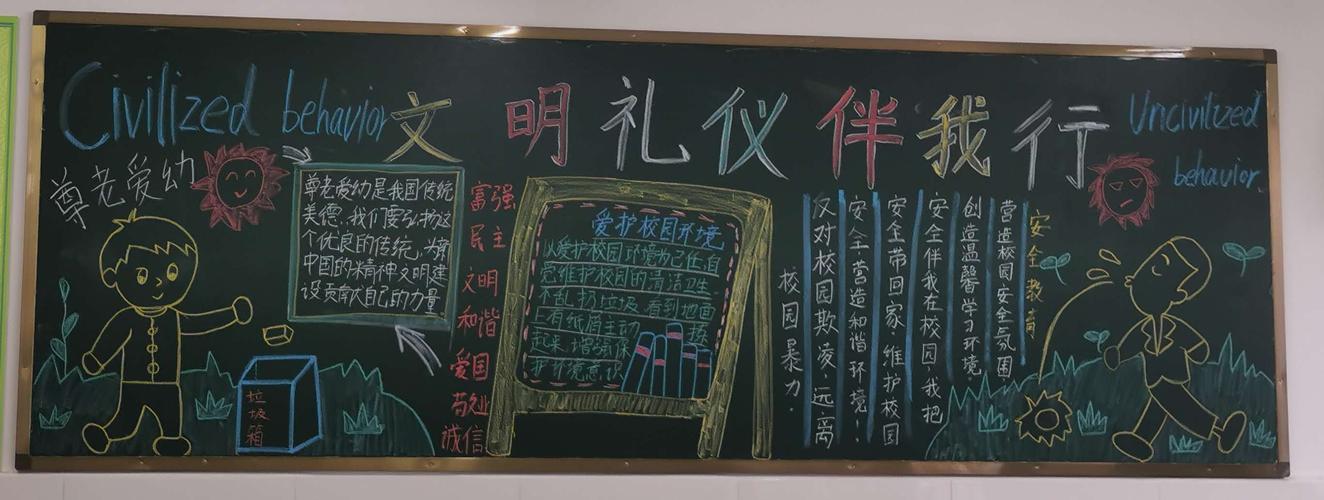 Civilized behavior
文明礼仪伴我行
Uncivilized
behavior
尊老爱幼
尊老爱幼是我国传统
美德,我们要弘扬这
个优良的传统,为新
中国的精神文明建
设贡献自己的力量
垃圾箱
富强
民主
文明
和谐
爱国
敬业
诚信
爱护校园环境
以爱护校园环境为己任,自
觉维护校园的清洁卫生
不乱扔垃圾 看到地面
上有纸屑主动 捡
起来,增强保
护环境意识
安全教育
营造校园安全氛围,
创造温馨学习环境.
安全伴我在校园,我把
安全带回家.维护校园
安全,营造和谐环境!
反对校园欺凌,远离
校园暴力.